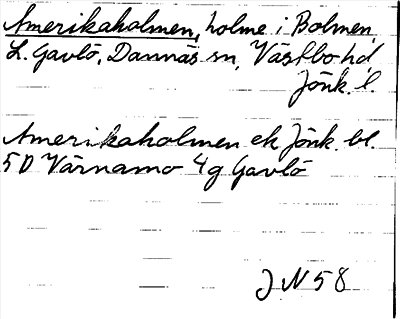 Amerikaholmen, holme i Bolmen,
L. Gavlö, Dannäs sn, Västbo hd
Jönk. l.
Amerikaholmen ek Jönk. bl.
5D Värnamo 4g Gavlö
JN58